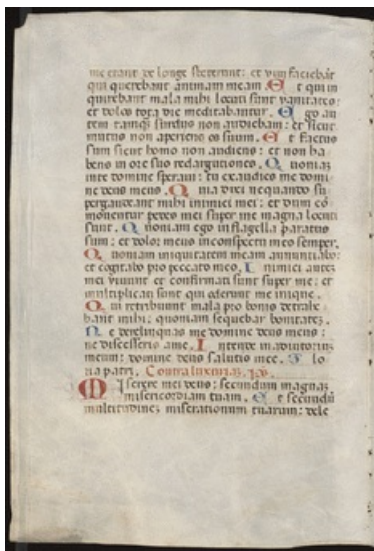 me erant de longe steterunt: et vim faciebāt
qui querebant animam meam. Et qui in
quirebant mala mihi locuti sunt vanitates:
et dolos tota die meditabantur. Ego au
tem tamq̄ surdus non audiebam: et sicut
mutus non aperiens os suum. Et factus
sum sicut homo non audiens: et non ha
bens in ore suo redargutiones. Quoniaz
in te domine speraui: tu exaudies me domi
ne deus meus. Quia dixi nequando su
pergaudeant mihi inimici mei: et dum cō
mouentur pedes mei super me magna locuti
sunt. Quoniam ego in flagella paratus
sum: et dolor meus in conspectu meo semper.
Quoniam iniquitatem meam annuntiabo:
et cogitabo pro peccato meo. Inimici autez
mei viuunt et confirmati sunt super me: et
multiplicati sunt qui oderunt me inique.
Qui retribuunt mala pro bonis detrahe
bant mihi: quoniam sequebar bonitatez.
Ne derelinquas me domine deus meus:
ne discesseris a me. Intende in adiutoriuz
meum: domine deus salutis mee. Glo
ria patri. Contra luxuriaz. ps.
Miserere mei deus: secundum magnaz
misericordiam tuam. Et secundū
multitudinez miserationum tuarum: dele